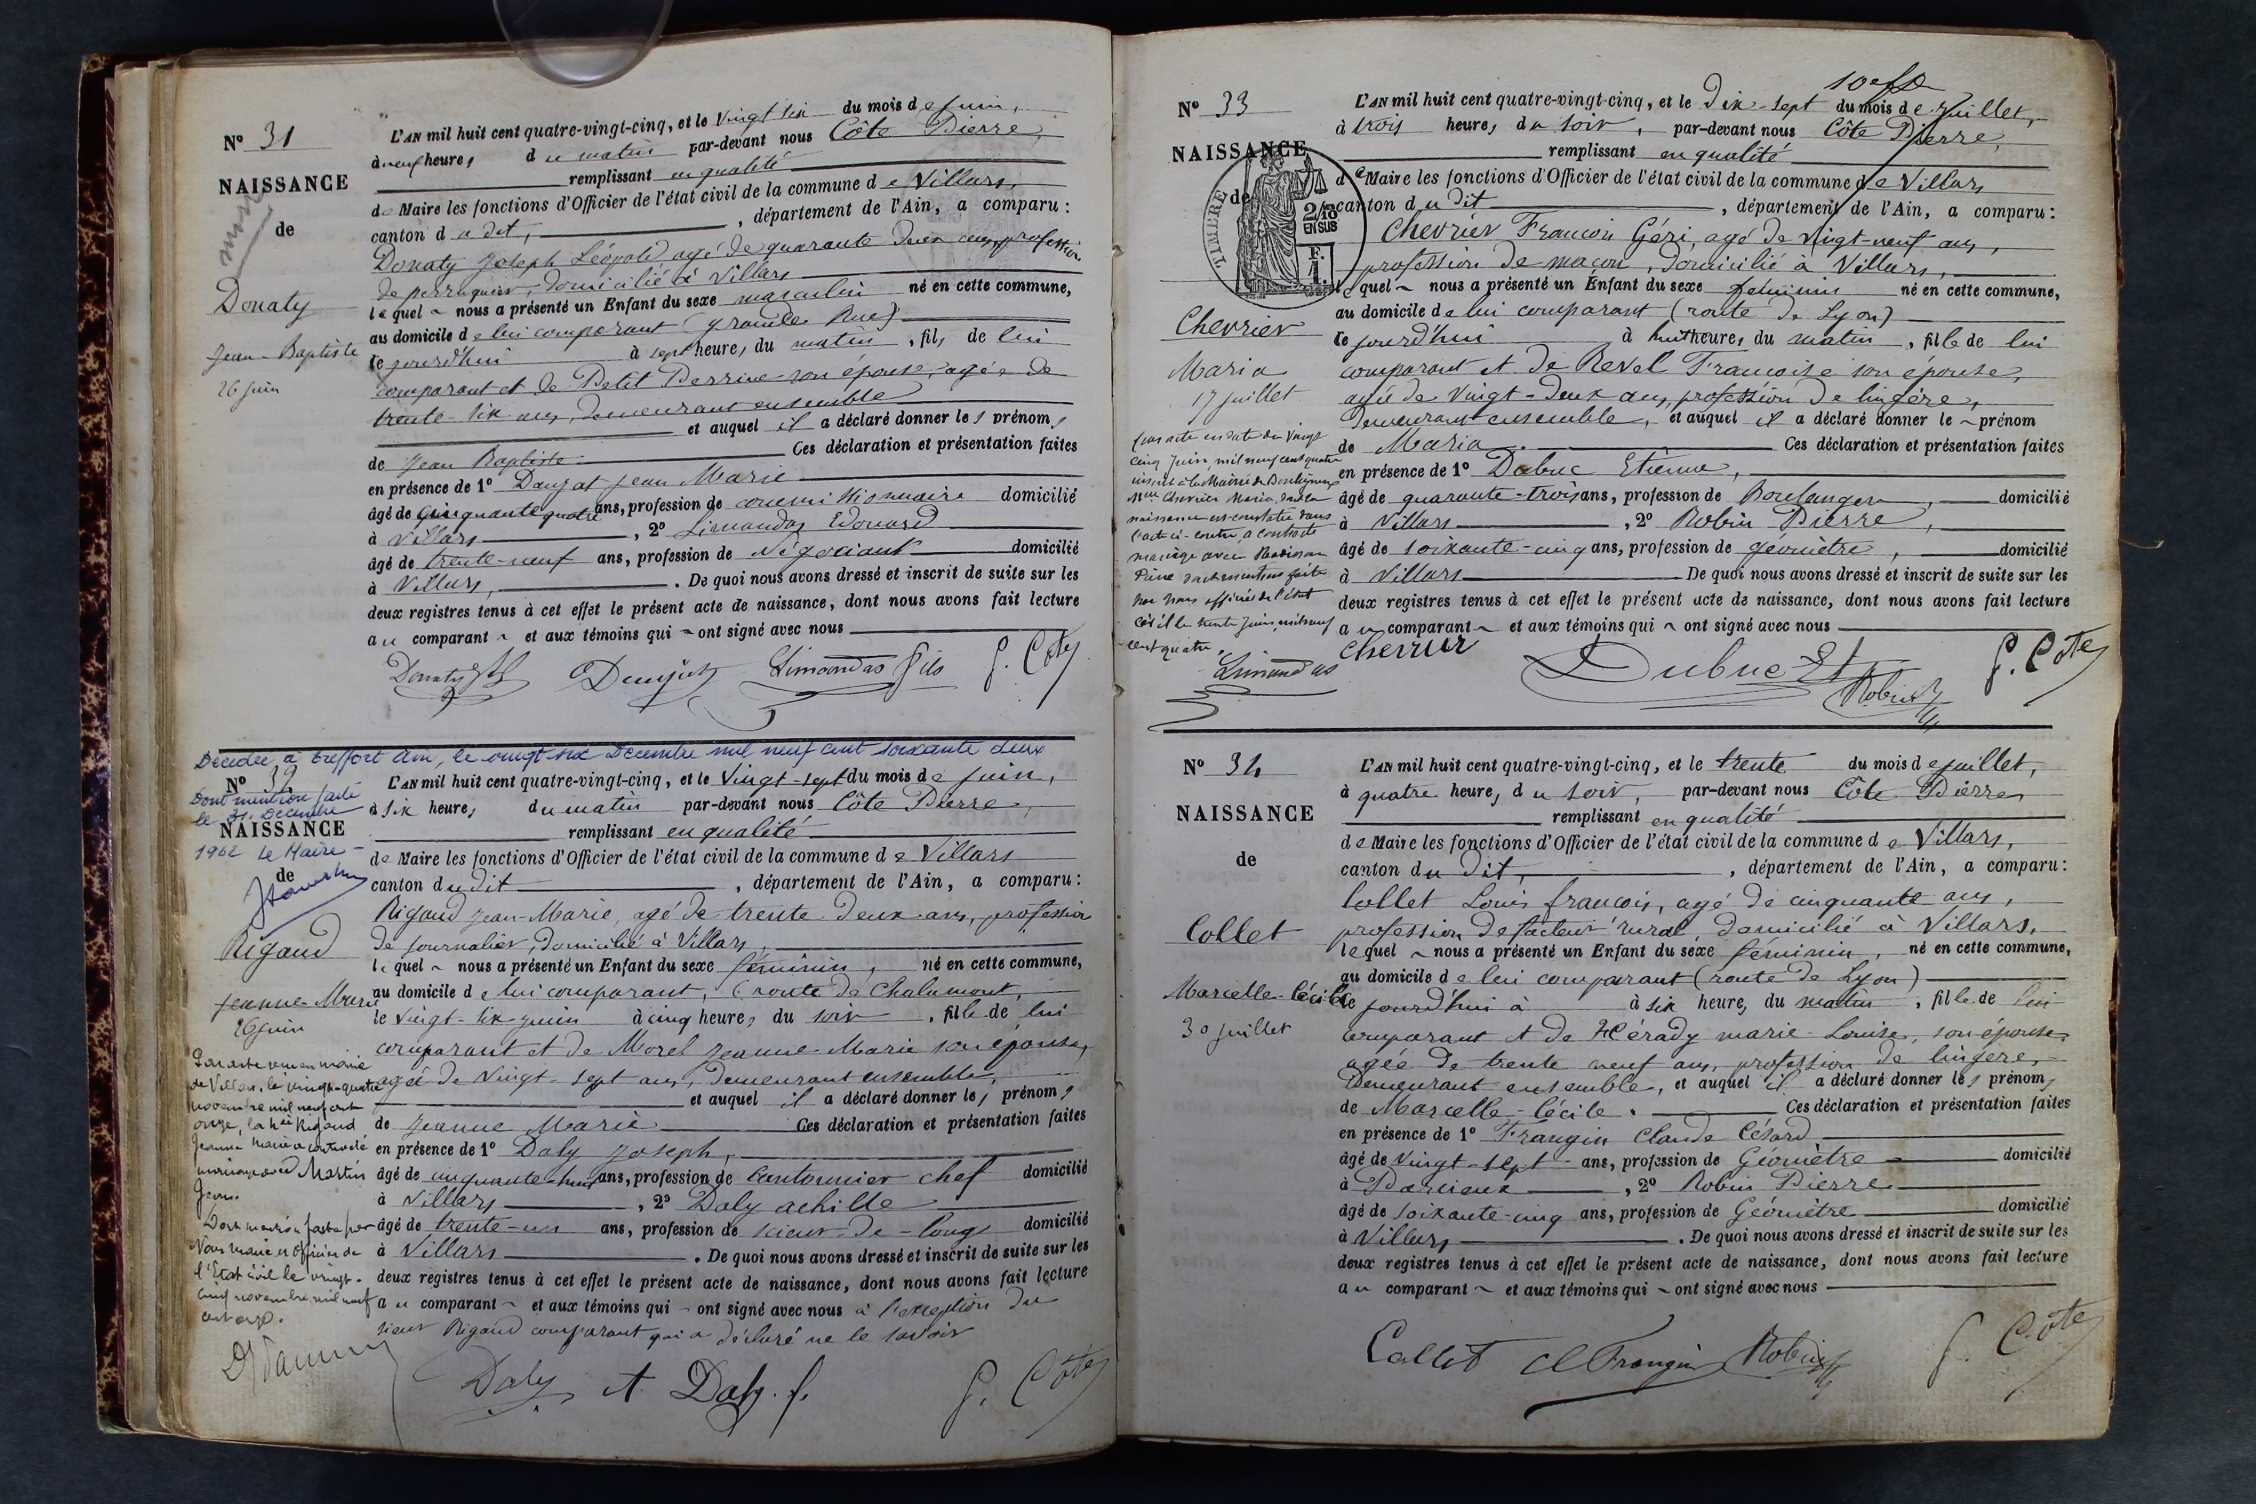 Nº 31
NAISSANCE
de
Donaty
Jean-Baptiste
26 juin
L'AN mil huit cent quatre-vingt-cinq, et le Vingt six du mois de juin,
à neuf heures du matin par-devant nous Côte Pierre,
remplissant en qualité
de Maire les fonctions d'Officier de l'état civil de la commune de Villars,
canton du dit, département de l'Ain, a comparu :
Donaty Joseph Léopold, agé de quarante deux ans, profession
de perruquier, domicilié à Villars
lequel nous a présenté un Enfant du sexe masculin né en cette commune,
au domicile de lui comparant (grande Rue)
ce jourd'hui à sept heures du matin, fils de lui
comparant et de Petit Perrine son épouse, agée de
trente-six ans, demeurant ensemble
et auquel il a déclaré donner les prénoms
de Jean Baptiste Ces déclaration et présentation faites
en présence de 1º Daujat Jean Marie
âgé de cinquante quatre ans, profession de commissionnaire domicilié
à Villars, 2º Limandas Edouard
âgé de trente-neuf ans, profession de Négociant domicilié
à Villars, . De quoi nous avons dressé et inscrit de suite sur les
deux registres tenus à cet effet le présent acte de naissance, dont nous avons fait lecture
au comparant et aux témoins qui ont signé avec nous
Donaty Daujat Limandas fils P. Côte
Décédée à Treffort Ain, le vingt six Décembre mil neuf cent soixante deux
Nº 32
Dont mention faite
le 31 Décembre
NAISSANCE
1962 Le Maire
de
Rigaud
Jeanne-Marie
26 juin
Par acte reçu en mairie
de Villars, le vingt-quatre
novembre mil neuf cent
onze, la née Rigaud
Jeanne Marie a contracté
mariage avec Martin
Jean.
Dont mention faite par
Nous maire et officier de
l'Etat civil le vingt-
novembre mil neuf
cent onze.
L'AN mil huit cent quatre-vingt-cinq, et le Vingt-sept du mois de juin,
à six heures du matin par-devant nous Côte Pierre,
remplissant en qualité
de Maire les fonctions d'Officier de l'état civil de la commune de Villars
canton du dit, département de l'Ain, a comparu :
Rigaud Jean-Marie, agé de trente deux ans, profession
de journalier, domicilié à Villars,
lequel nous a présenté un Enfant du sexe féminin, né en cette commune,
au domicile de lui comparant, (route de Chalamont,
le vingt-six juin à cinq heures du soir, fille de lui
comparant et de Morel Jeanne-Marie son épouse,
agée de Vingt-sept ans, demeurant ensemble,
et auquel il a déclaré donner les prénoms
de Jeanne Marie Ces déclaration et présentation faites
en présence de 1º Daly Joseph,
âgé de cinquante-huit ans, profession de Cantonnier chef domicilié
à Villars, 2º Daly achille
âgé de trente-un ans, profession de scieur-de-long domicilié
à Villars. De quoi nous avons dressé et inscrit de suite sur les
deux registres tenus à cet effet le présent acte de naissance, dont nous avons fait lecture
au comparant et aux témoins qui ont signé avec nous à l'exception du
sieur Rigaud comparant qui a déclaré ne le savoir
Daly A Daly. f. P. Côte
Nº 33
NAISSANCE
de
TIMBRE
2/10 EN SUS
F. 1.
Chevrier
Maria
17 juillet
Par acte en date du Vingt
cinq Juin, mil neuf cent quatre
inscrit à la Mairie de
Melle Chevrier Maria, dont la
naissance est constatée dans
l'acte ci-contre, a contracté
mariage avec
Pierre dont mention faite
par nous officier de l'état
civil le trente Juin, mil neuf
cent quatre.
Limandas
L'AN mil huit cent quatre-vingt-cinq, et le Dix-sept du mois de juillet,
à trois heures du soir, par-devant nous Côte Pierre,
remplissant en qualité
de Maire les fonctions d'Officier de l'état civil de la commune de Villars
canton du dit, département de l'Ain, a comparu :
Chevrier François Géri, agé de Vingt-neuf ans,
profession de maçon, domicilié à Villars,
lequel nous a présenté un Enfant du sexe feminin né en cette commune,
au domicile de lui comparant (route de Lyon)
ce jourd'hui à huit heures du matin, fille de lui
comparant et de Revel Françoise son épouse,
agée de Vingt-deux ans, profession de lingère,
demeurant ensemble, et auquel il a déclaré donner le prénom
de Maria. Ces déclaration et présentation faites
en présence de 1º Dubuc Etienne,
âgé de quarante-trois ans, profession de Boulanger, domicilié
à Villars, 2º Robin Pierre,
âgé de soixante-cinq ans, profession de géomètre, domicilié
à Villars De quoi nous avons dressé et inscrit de suite sur les
deux registres tenus à cet effet le présent acte de naissance, dont nous avons fait lecture
au comparant et aux témoins qui ont signé avec nous
Chevrier Dubuc Et Robin P. Côte
Nº 34
NAISSANCE
de
Collet
Marcelle-Cécile
30 juillet
L'AN mil huit cent quatre-vingt-cinq, et le trente du mois de juillet,
à quatre heures du soir, par-devant nous Côte Pierre
remplissant en qualité
de Maire les fonctions d'Officier de l'état civil de la commune de Villars,
canton du dit, département de l'Ain, a comparu :
Collet Louis françois, agé de cinquante ans,
profession de facteur rural, domicilié à Villars,
lequel nous a présenté un Enfant du sexe féminin, né en cette commune,
au domicile de lui comparant (route de Lyon)
ce jourd'hui à à six heures du matin, fille de lui
comparant et de Hérady marie-Louise, son épouse
agée de trente neuf ans, profession de lingère,
demeurant ensemble, et auquel il a déclaré donner les prénoms
de Marcelle-Cécile. Ces déclaration et présentation faites
en présence de 1º Frangin Claude Césard
âgé de Vingt-sept ans, profession de Géomètre domicilié
à Darcieux, 2º Robin Pierre
âgé de soixante-cinq ans, profession de Géomètre domicilié
à Villars. De quoi nous avons dressé et inscrit de suite sur les
deux registres tenus à cet effet le présent acte de naissance, dont nous avons fait lecture
au comparant et aux témoins qui ont signé avec nous
Collet Cl Frangin Robin P. Côte